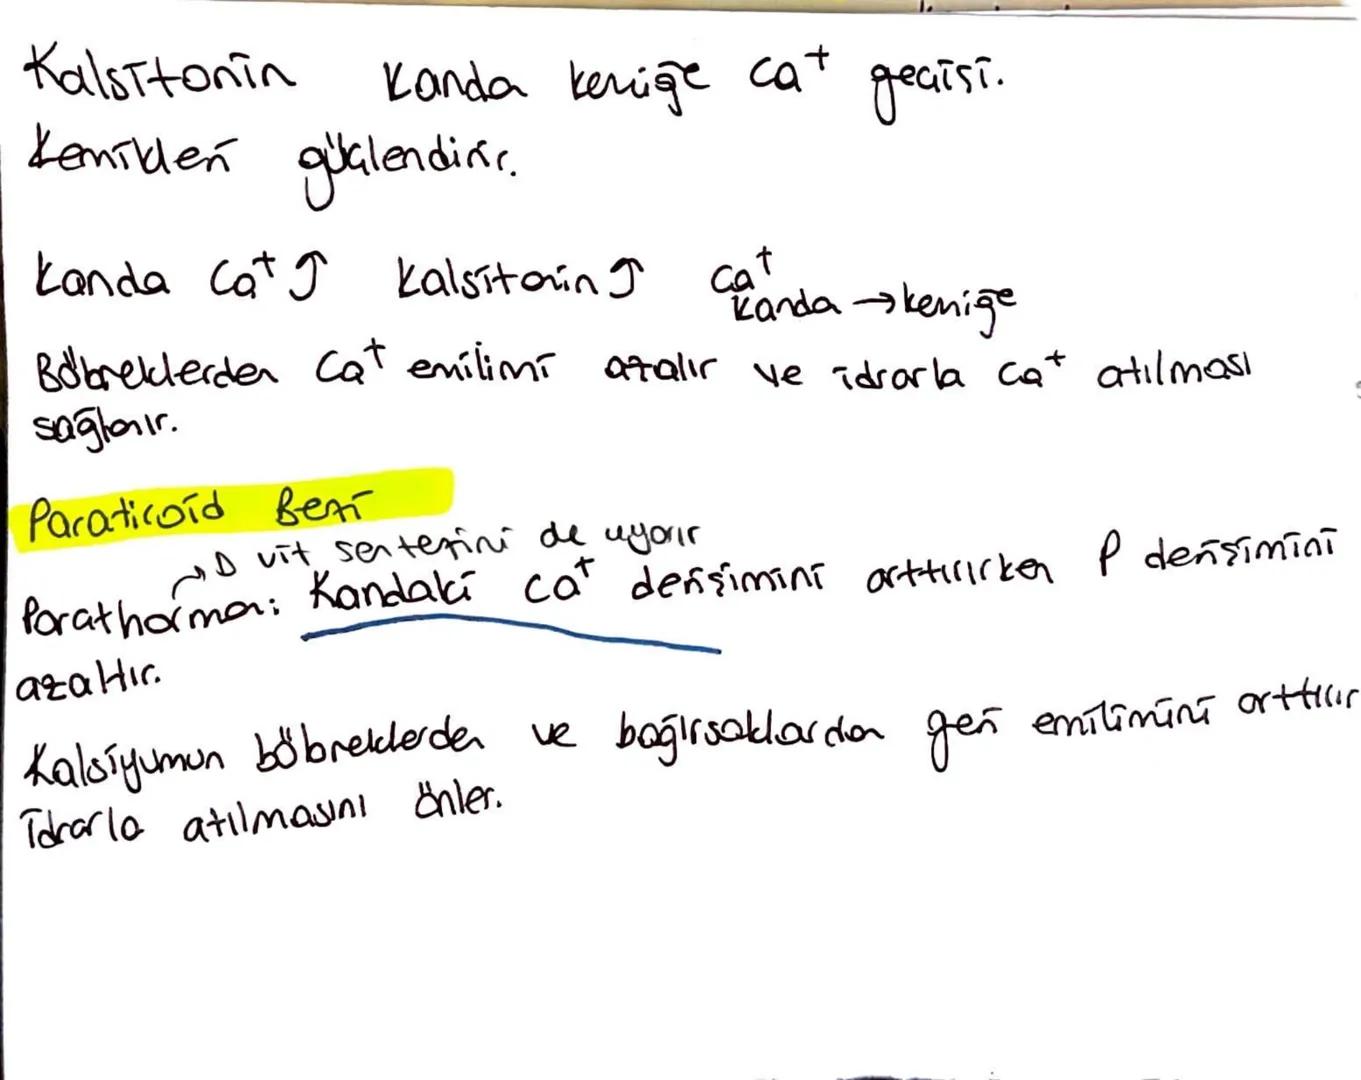 Kalsitonin kanda kemiğe Ca⁺ geçişi.
Kemikleri güçlendirir.
Kanda Ca⁺ ↑ Kalsitonin ↑ Ca⁺ kanda → kemiğe
Böbreklerden Ca⁺ emilimi azalır ve idrarla Ca⁺ atılması
sağlanır.
Paratiroid Bezi
→ D vit sentezini de uyarır
Parathormon: Kandaki Ca⁺ derişimini arttırırken P derişimini
azaltır.
Kalsiyumun böbreklerden ve bağırsaklardan geri emilimini arttırır
İdrarla atılmasını önler.